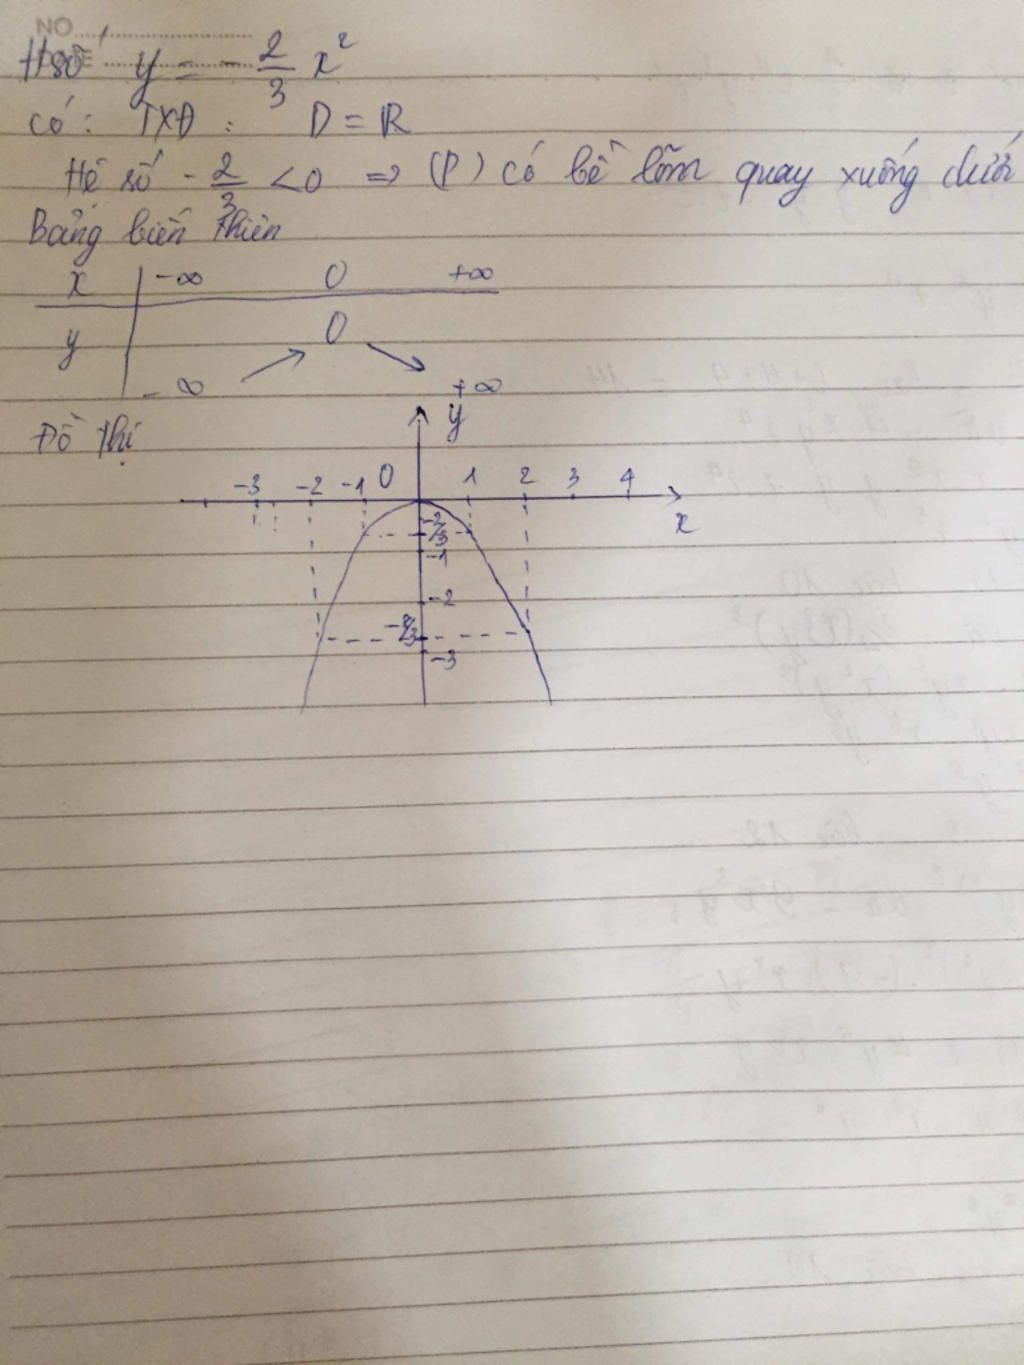 NO
Hsố y = - 2/3 x²
có: TXĐ: D = R
Hệ số - 2/3 < 0 => (P) có bề lõm quay xuống dưới
Bảng biến thiên
x -∞ 0 +∞
y 0
-∞ +∞
Đồ thị
y
-3 -2 -1 0 1 2 3 4
x
-2/3
-1
-2
-8/3
-3